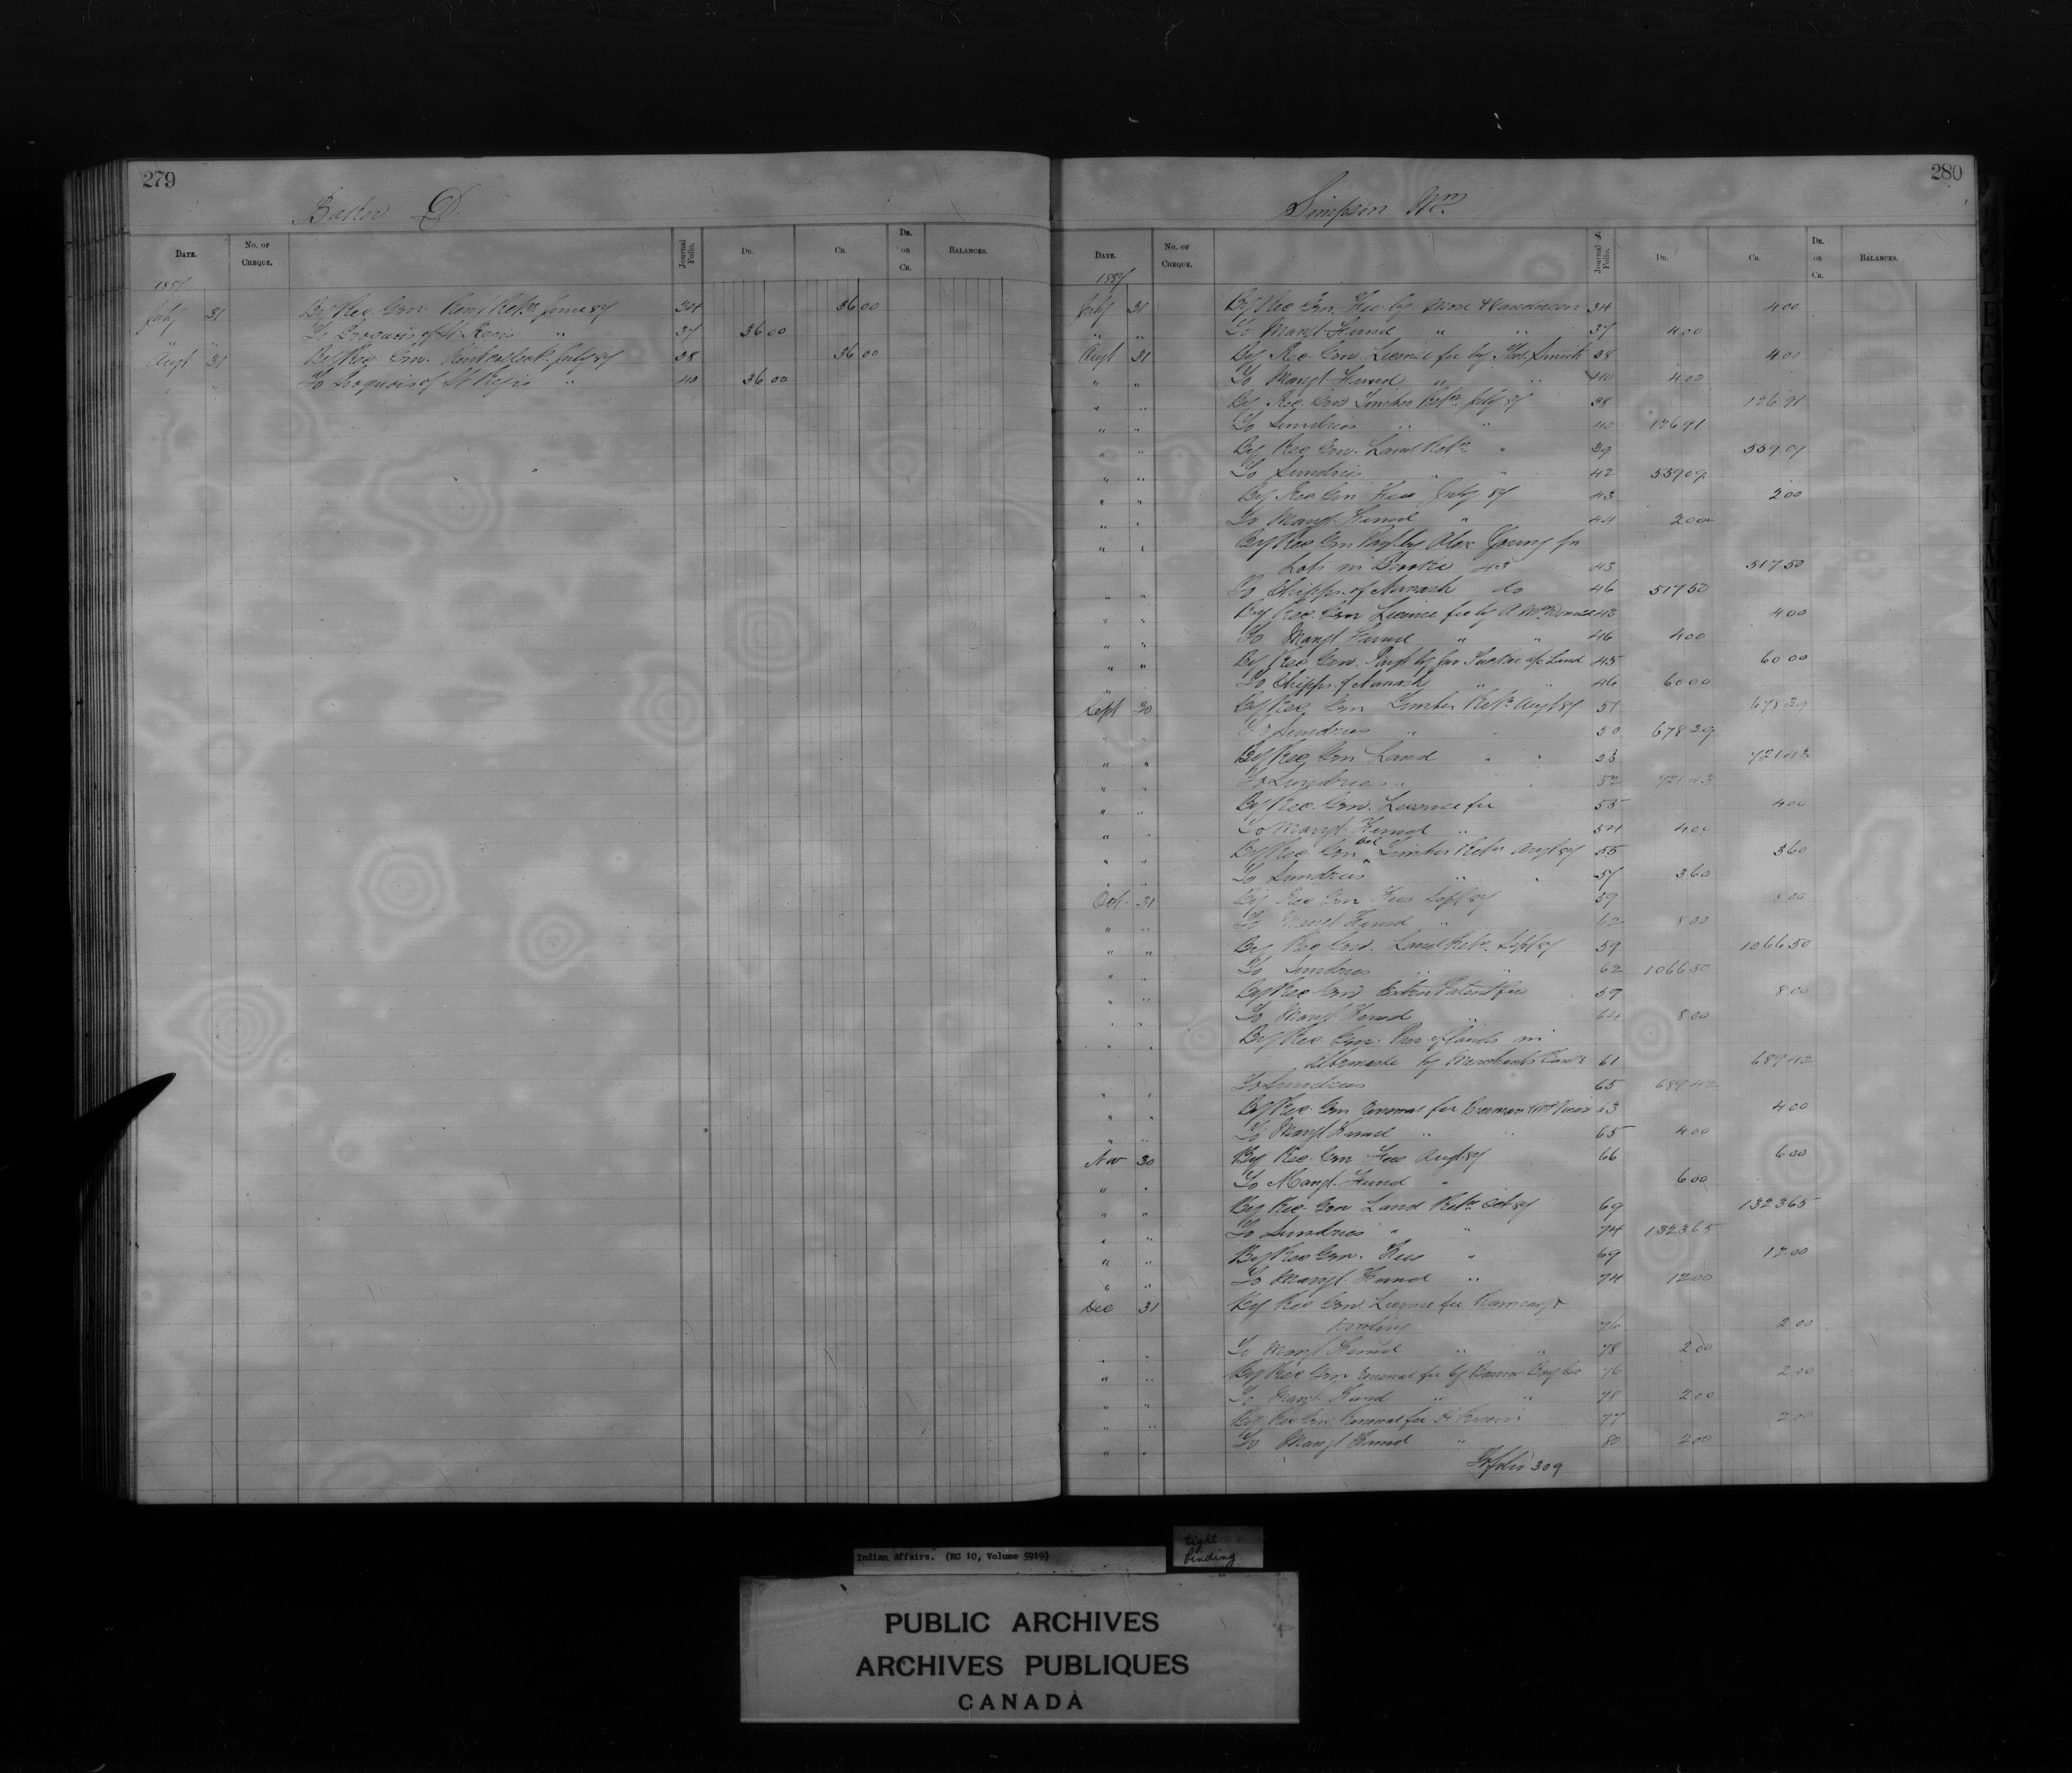 279
D.
DATE.
No. of CHEQUE.
Journal Folio.
DR.
CR.
DR. OR CR.
BALANCES.
1887
July 31 By Rec. Gen. Rent Retn June 87 34 36 00
" " To Iroquois of St Regis " 37 36 00
Augt 31 By Rec. Gen. Rent July 87 38 36 00
" " To Iroquois of St Regis " 40 36 00
280
Simpson Wm
DATE.
No. of CHEQUE.
Journal Folio.
DR.
CR.
DR. OR CR.
BALANCES.
1887
July 31 By Rec Gen. Fee by 34 4 00
" " To Mangt Fund " " 37 4 00
Augt 31 By Rec. Gen. License fee by Thos Smith 38 4 00
" " To Mangt Fund " " 40 4 00
" " By Rec. Gen Timber Retn July 87 38 126 91
" " To Sundries " " 40 126 91
" " By Rec Gen. Land Retn " 39 559 09
" " To Sundries " " 42 559 09
" " By Rec Gen Fees July 87 43 2 00
" " To Mangt. Fund " 44 2 00
" " By Rec Gen Payt by Alex Young for
Lots in Brooke 43 43 517 50
" " To Chipps. of Nawash do 46 517 50
" " By Rec. Gen License fee by A 43 4 00
" " To Mangt Fund " " 46 4 00
" " By Rec Gen. Payt by a/c Land 45 60 00
" " To Chipps. of Nawash " " 46 60 00
Sept 30 By Rec. Gen Timber Retn Augt 87 51 678 39
" " To Sundries " " 50 678 39
" " By Rec Gen Land " " 53 721 43
" " To Sundries " " 52 721 43
" " By Rec. Gen. License fee 55 4 00
" " To Mangt. Fund " 54 4 00
" " By Rec Gen Bal Timber Retn Augt 87 55 3 60
" " To Sundries " " 57 3 60
Oct. 31 By Rec Gen Fees Sept 87 59 8 00
" " To Mangt Fund " 62 8 00
" " By Rec Gen. Land Retn Sept 87 59 1066 50
" " To Sundries " " 62 1066 50
" " By Rec Gen Patent fee 59 8 00
" " To Mangt Fund " 64 8 00
" " By Rec. Gen. of lands in
Albemarle by Merchants Bank 61 689 42
" " To Sundries 65 689 42
" " By Rec. Gen renewal fee 63 4 00
" " To Mangt Fund " " 65 4 00
Nov 30 By Rec. Gen Fees Augt 87 66 6 00
" " To Mangt. Fund " 6 00
" " By Rec. Gen Land Retn Oct 87 69 1323 65
" " To Sundries " " 74 1323 65
" " By Rec Gen. Fees " 69 12 00
" " To Mangt. Fund " 74 12 00
Dec 31 By Rec Gen License fee Ramsay &
76 2 00
" " To Mangt Fund " " 78 2 00
" " By Rec Gen renewal fee by Co 76 2 00
" " To Mangt Fund " " 78 2 00
" " By Rec Gen Renewal fee 77 2 00
" " To Mangt Fund " 80 2 00
To folio 309
Indian Affairs. (RG 10, Volume 5919)
tight
binding
PUBLIC ARCHIVES
ARCHIVES PUBLIQUES
CANADA